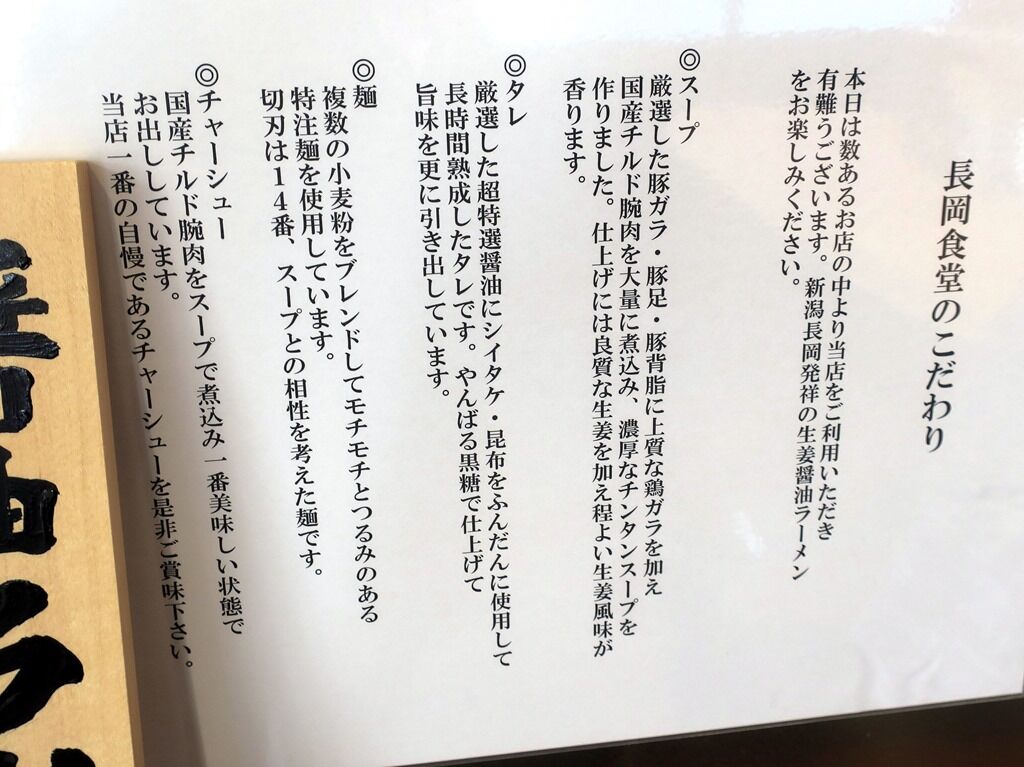 長岡食堂のこだわり
本日は数あるお店の中より当店をご利用いただき
有難うございます。新潟長岡発祥の生姜醤油ラーメン
をお楽しみください。
◎スープ
厳選した豚ガラ・豚足・豚背脂に上質な鶏ガラを加え
国産チルド腕肉を大量に煮込み、濃厚なチンタンスープを
作りました。仕上げには良質な生姜を加え程よい生姜風味が
香ります。
◎タレ
厳選した超特選醤油にシイタケ・昆布をふんだんに使用して
長時間熟成したタレです。やんばる黒糖で仕上げて
旨味を更に引き出しています。
◎麺
複数の小麦粉をブレンドしてモチモチとつるみのある
特注麺を使用しています。
切刃は14番、スープとの相性を考えた麺です。
◎チャーシュー
国産チルド腕肉をスープで煮込み一番美味しい状態で
お出ししています。
当店一番の自慢であるチャーシューを是非ご賞味下さい。